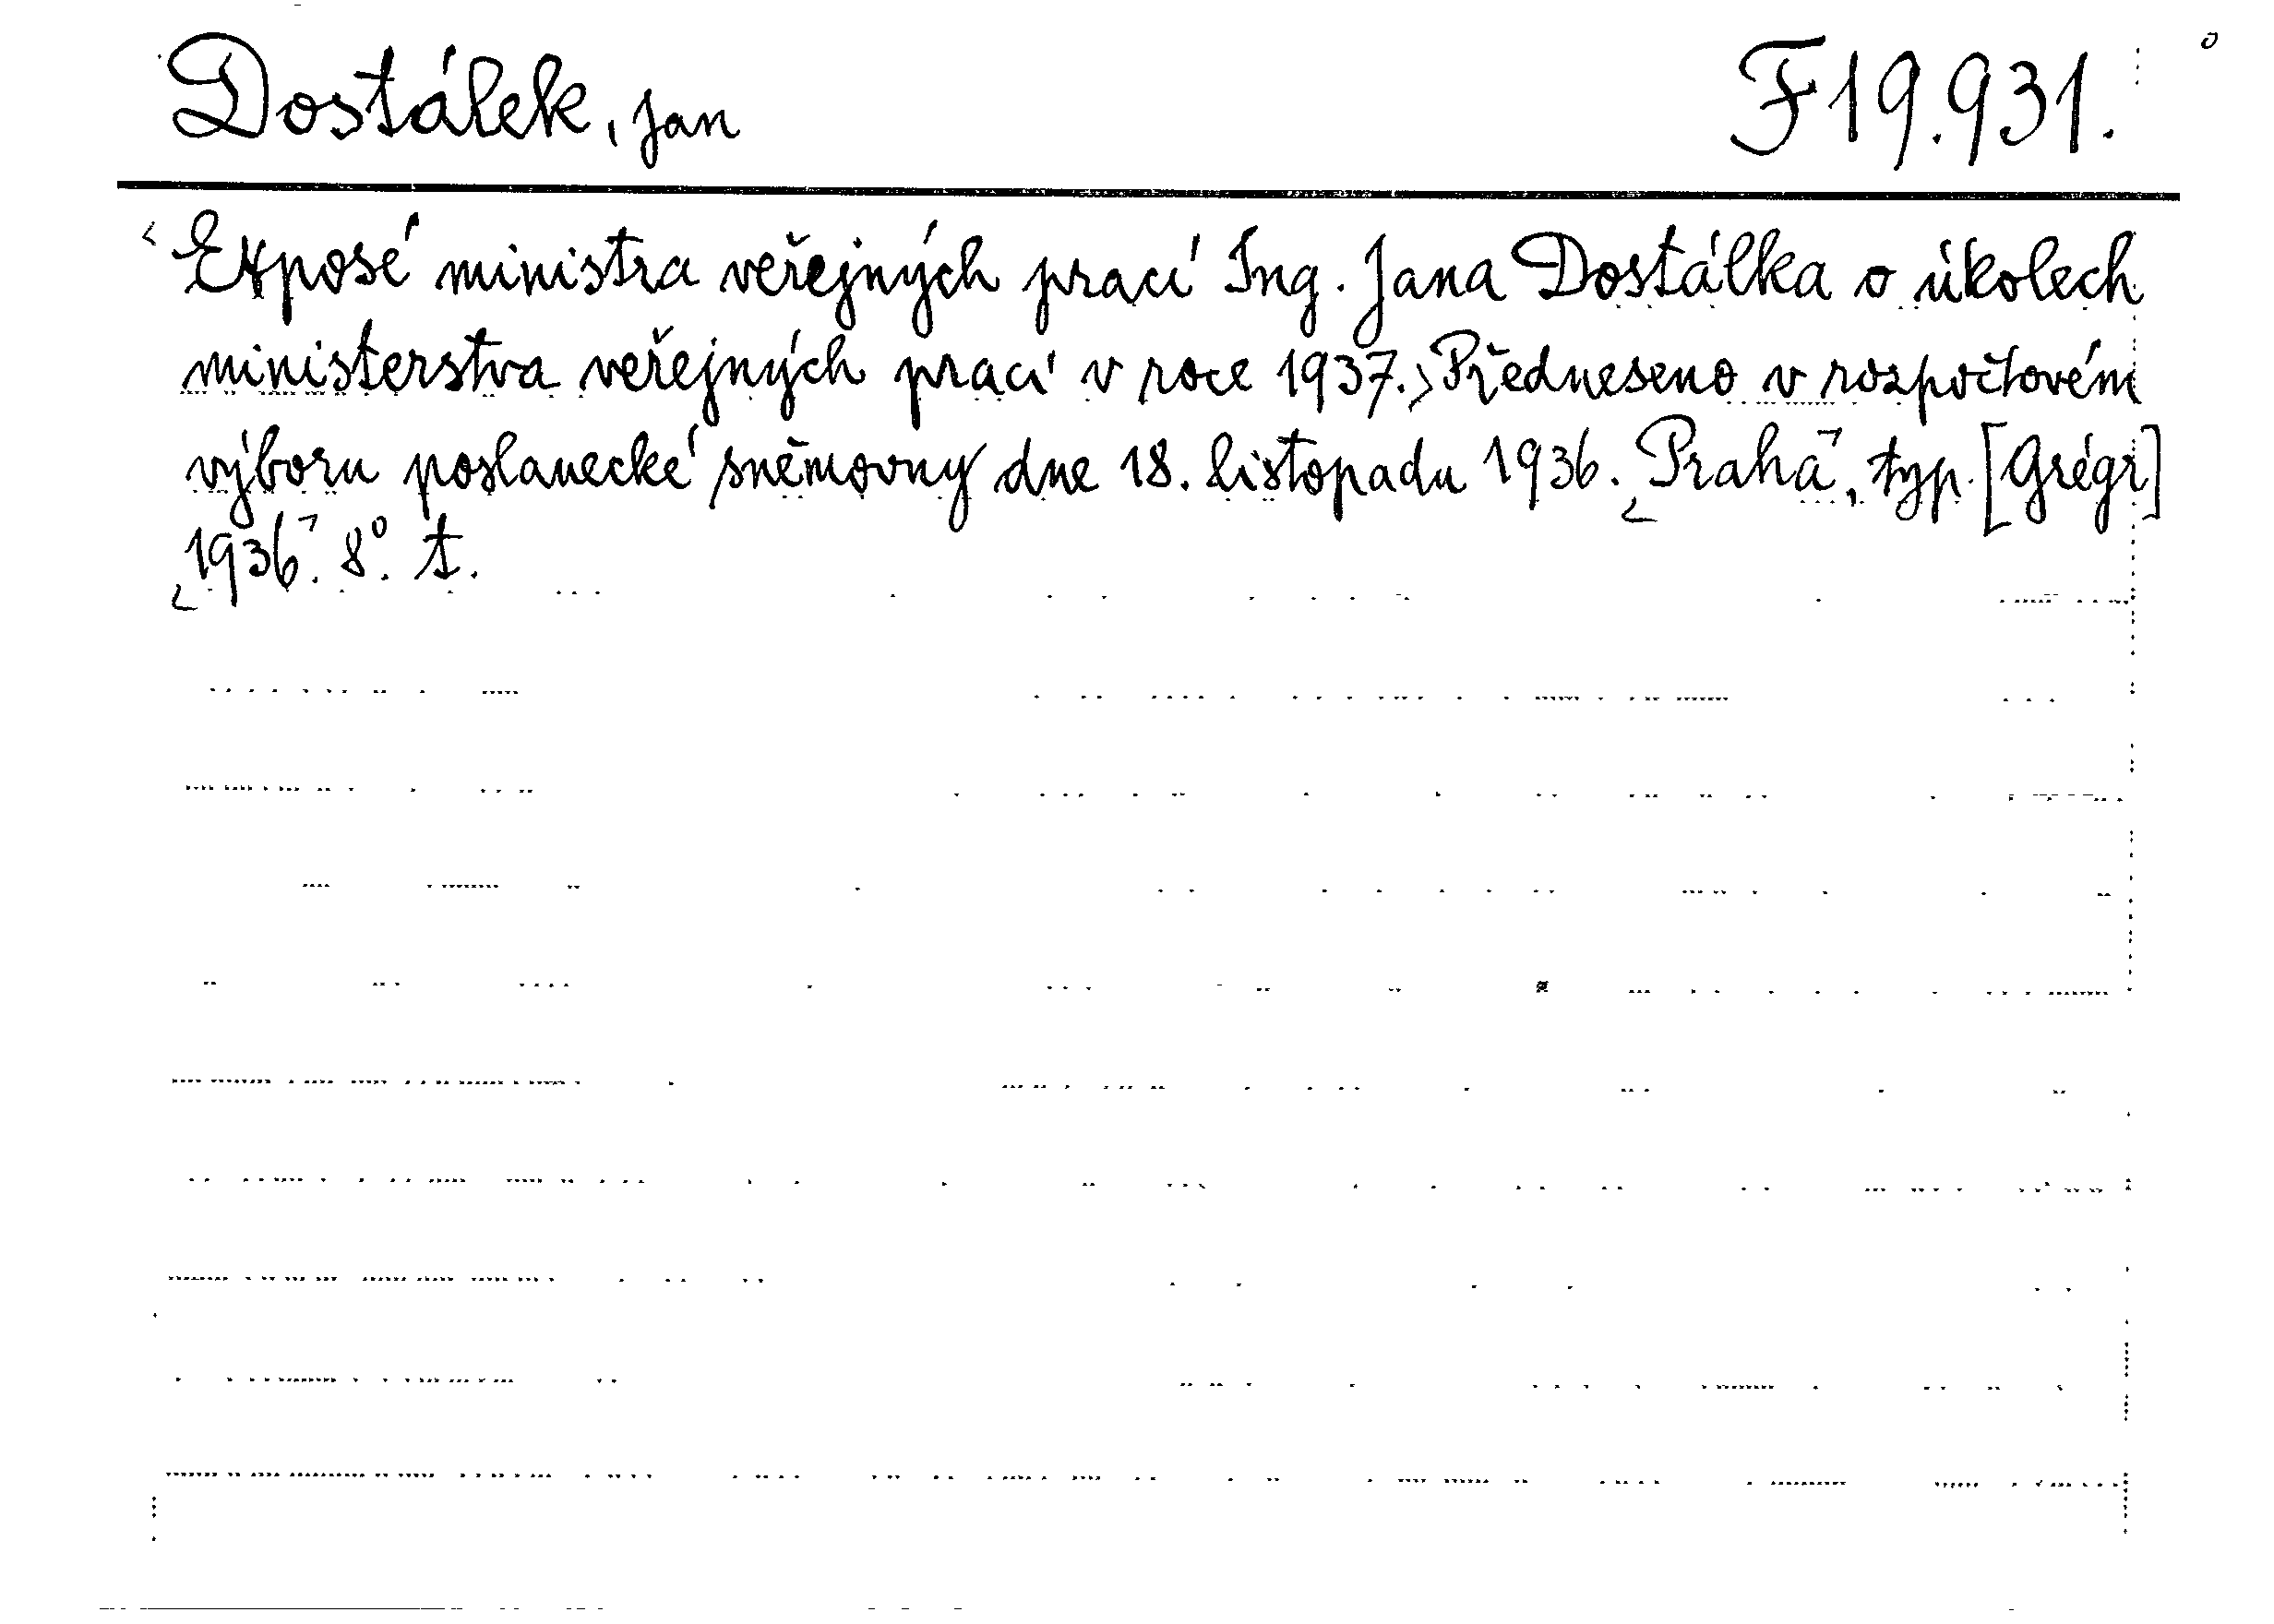 Dostálek, Jan F19.931.
<Exposé ministra veřejných prací Ing. Jana Dostálka o úkolech
ministerstva veřejných prací v roce 1937.> Předneseno v rozpočtovém
výboru poslanecké sněmovny dne 18. listopadu 1936. Praha, typ. [Grégr]
1936. 8°. t.